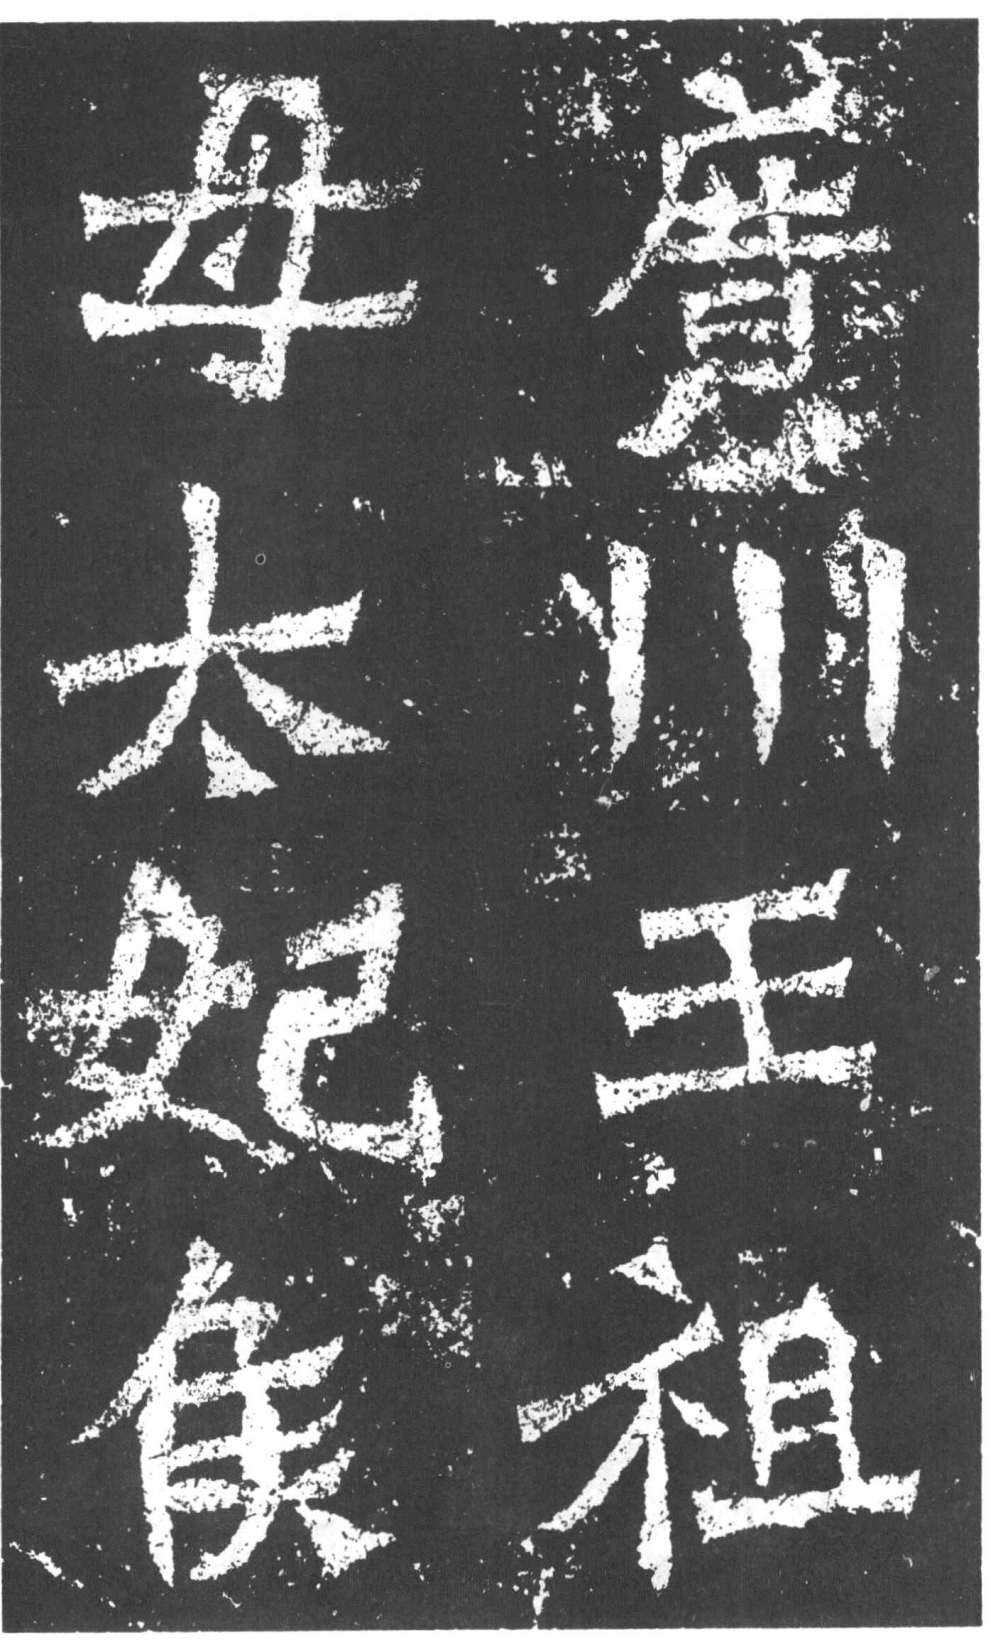 廣川王祖
母太妃侯